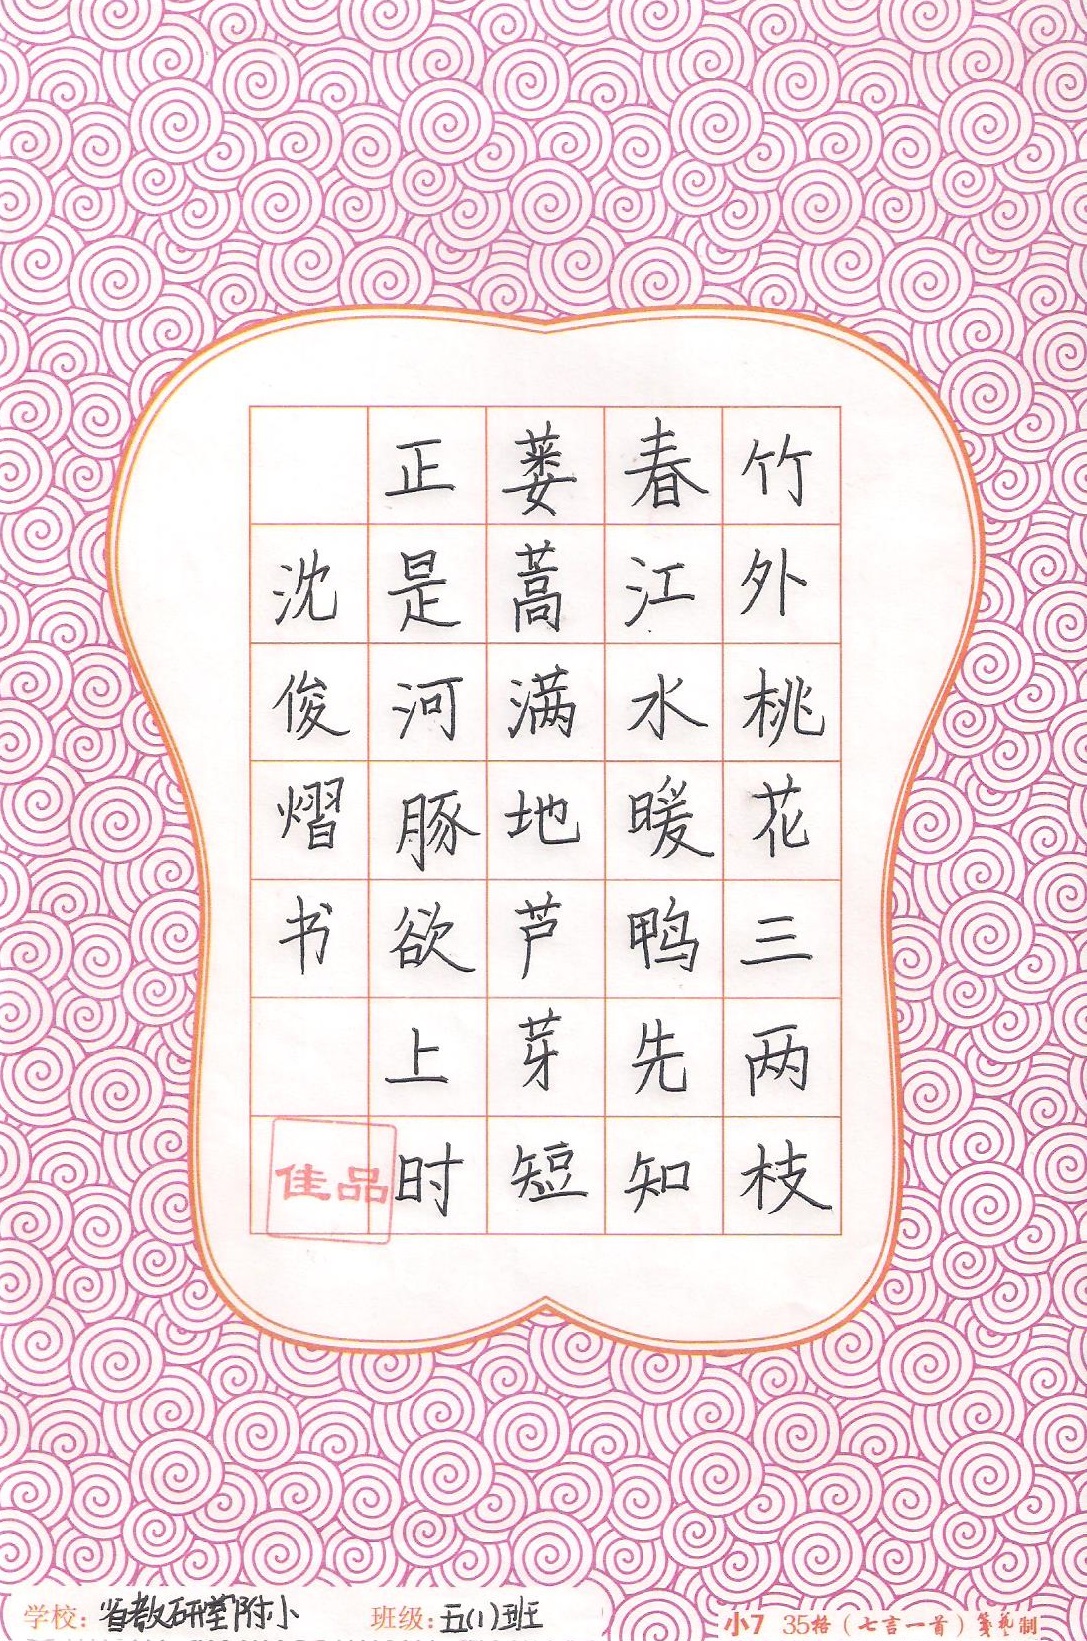 竹外桃花三两枝
春江水暖鸭先知
蒌蒿满地芦芽短
正是河豚欲上时
沈俊熠书
佳品
学校：省教研室附小
班级：五(1)班
小7 35格（七言一首）笺艺制